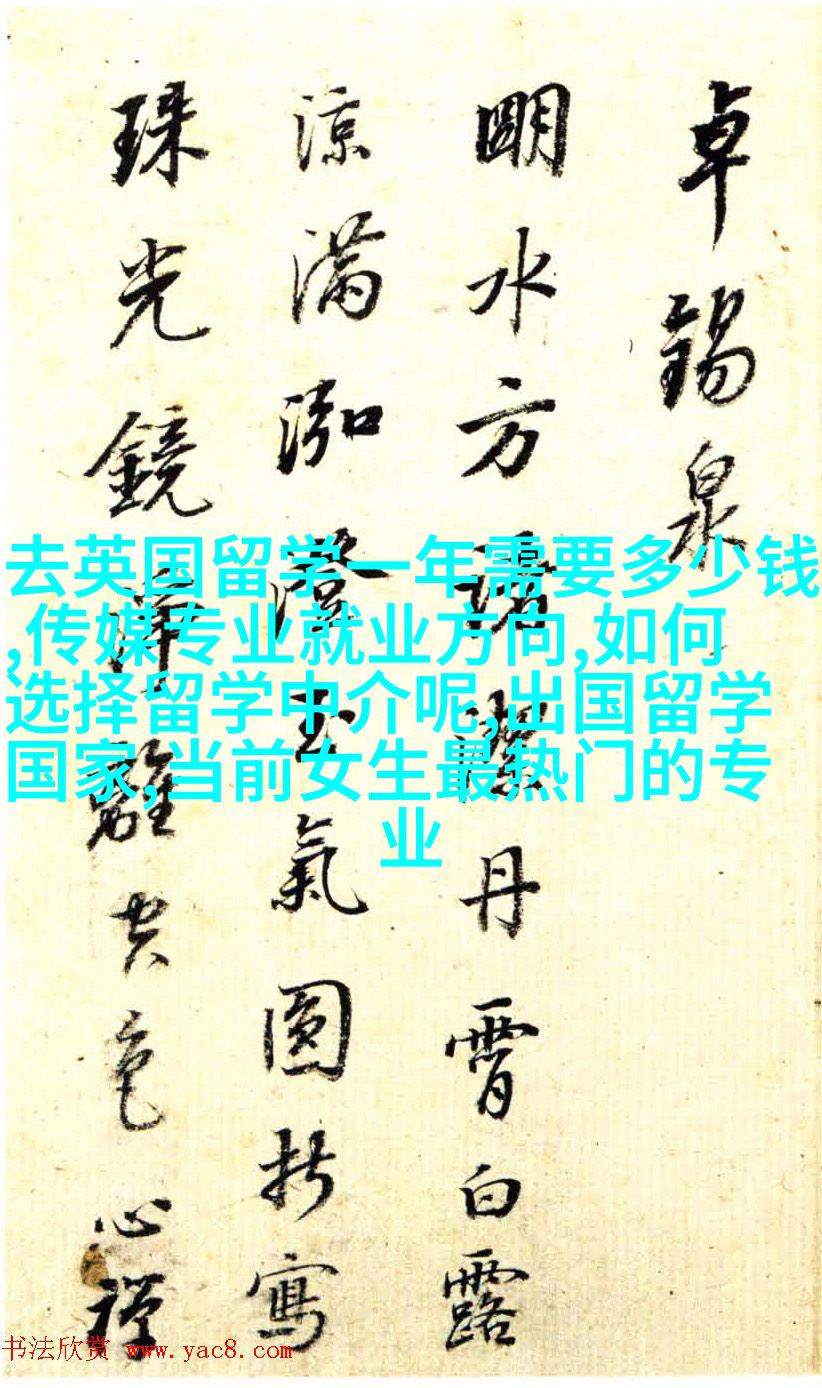 卓錫泉
朙水方諸潔丹霄白露
涼滿泓澄玉氣圓折寫
珠光鏡淨離空色心禪
去英国留学一年需要多少钱
,传媒专业就业方向,如何
选择留学中介呢,出国留学
国家,当前女生最热门的专
业
书法欣赏 www.yac8.com